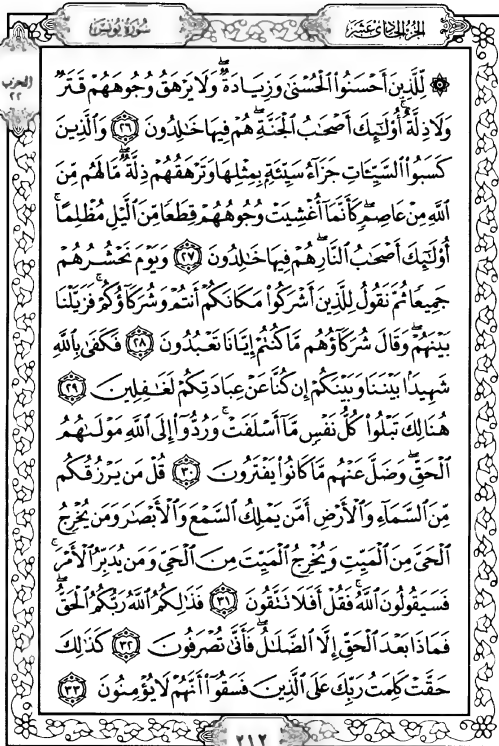 سُورَةُ يُونُسَ
الجُزْءُ الحَادِي عَشَرَ
الحزب
٢٢
۞ لِّلَّذِينَ أَحْسَنُوا۟ ٱلْحُسْنَىٰ وَزِيَادَةٌ ۖ وَلَا يَرْهَقُ وُجُوهَهُمْ قَتَرٌ
وَلَا ذِلَّةٌ ۚ أُو۟لَٰٓئِكَ أَصْحَٰبُ ٱلْجَنَّةِ ۖ هُمْ فِيهَا خَٰلِدُونَ ﴿٢٦﴾ وَٱلَّذِينَ
كَسَبُوا۟ ٱلسَّيِّـَٔاتِ جَزَآءُ سَيِّئَةٍۭ بِمِثْلِهَا وَتَرْهَقُهُمْ ذِلَّةٌ ۖ مَّا لَهُم مِّنَ
ٱللَّهِ مِنْ عَاصِمٍ ۖ كَأَنَّمَآ أُغْشِيَتْ وُجُوهُهُمْ قِطَعًا مِّنَ ٱلَّيْلِ مُظْلِمًا ۚ
أُو۟لَٰٓئِكَ أَصْحَٰبُ ٱلنَّارِ ۖ هُمْ فِيهَا خَٰلِدُونَ ﴿٢٧﴾ وَيَوْمَ نَحْشُرُهُمْ
جَمِيعًا ثُمَّ نَقُولُ لِلَّذِينَ أَشْرَكُوا۟ مَكَانَكُمْ أَنتُمْ وَشُرَكَآؤُكُمْ ۚ فَزَيَّلْنَا
بَيْنَهُمْ ۖ وَقَالَ شُرَكَآؤُهُم مَّا كُنتُمْ إِيَّانَا تَعْبُدُونَ ﴿٢٨﴾ فَكَفَىٰ بِٱللَّهِ
شَهِيدًۢا بَيْنَنَا وَبَيْنَكُمْ إِن كُنَّا عَنْ عِبَادَتِكُمْ لَغَٰفِلِينَ ﴿٢٩﴾
هُنَالِكَ تَبْلُوا۟ كُلُّ نَفْسٍ مَّآ أَسْلَفَتْ ۚ وَرُدُّوٓا۟ إِلَى ٱللَّهِ مَوْلَىٰهُمُ
ٱلْحَقِّ ۖ وَضَلَّ عَنْهُم مَّا كَانُوا۟ يَفْتَرُونَ ﴿٣٠﴾ قُلْ مَن يَرْزُقُكُم
مِّنَ ٱلسَّمَآءِ وَٱلْأَرْضِ أَمَّن يَمْلِكُ ٱلسَّمْعَ وَٱلْأَبْصَٰرَ وَمَن يُخْرِجُ
ٱلْحَىَّ مِنَ ٱلْمَيِّتِ وَيُخْرِجُ ٱلْمَيِّتَ مِنَ ٱلْحَىِّ وَمَن يُدَبِّرُ ٱلْأَمْرَ ۚ
فَسَيَقُولُونَ ٱللَّهُ ۚ فَقُلْ أَفَلَا تَتَّقُونَ ﴿٣١﴾ فَذَٰلِكُمُ ٱللَّهُ رَبُّكُمُ ٱلْحَقُّ ۖ
فَمَاذَا بَعْدَ ٱلْحَقِّ إِلَّا ٱلضَّلَٰلُ ۖ فَأَنَّىٰ تُصْرَفُونَ ﴿٣٢﴾ كَذَٰلِكَ
حَقَّتْ كَلِمَتُ رَبِّكَ عَلَى ٱلَّذِينَ فَسَقُوٓا۟ أَنَّهُمْ لَا يُؤْمِنُونَ ﴿٣٣﴾
٢١٢